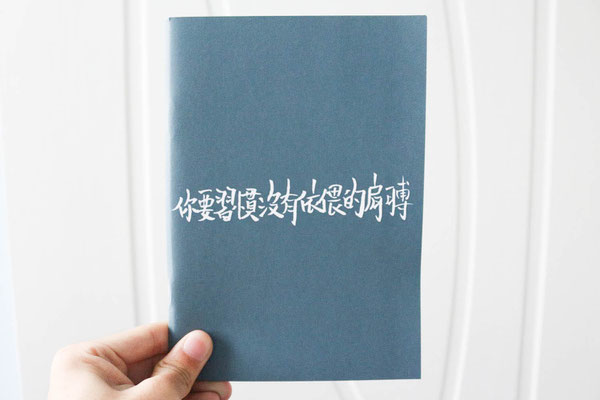 你要習慣沒有依偎的肩膊